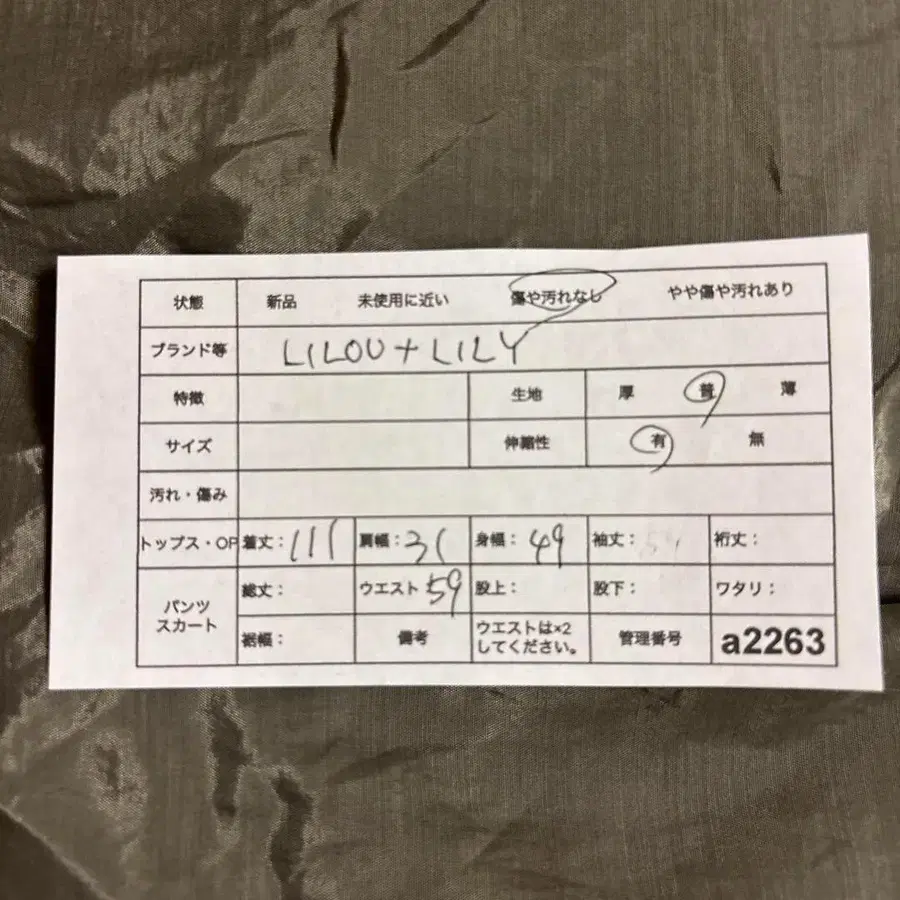 状態 新品 未使用に近い 傷や汚れなし やや傷や汚れあり
ブランド等 LILOU+LILY
特徴 生地 厚 普 薄
サイズ 伸縮性 有 無
汚れ・傷み
トップス・OP 着丈：111 肩幅：31 身幅：49 袖丈： 裄丈：
パンツ
スカート
総丈： ウエスト 59 股上： 股下： ワタリ：
裾幅： 備考 ウエストは×2
してください。 管理番号 a2263